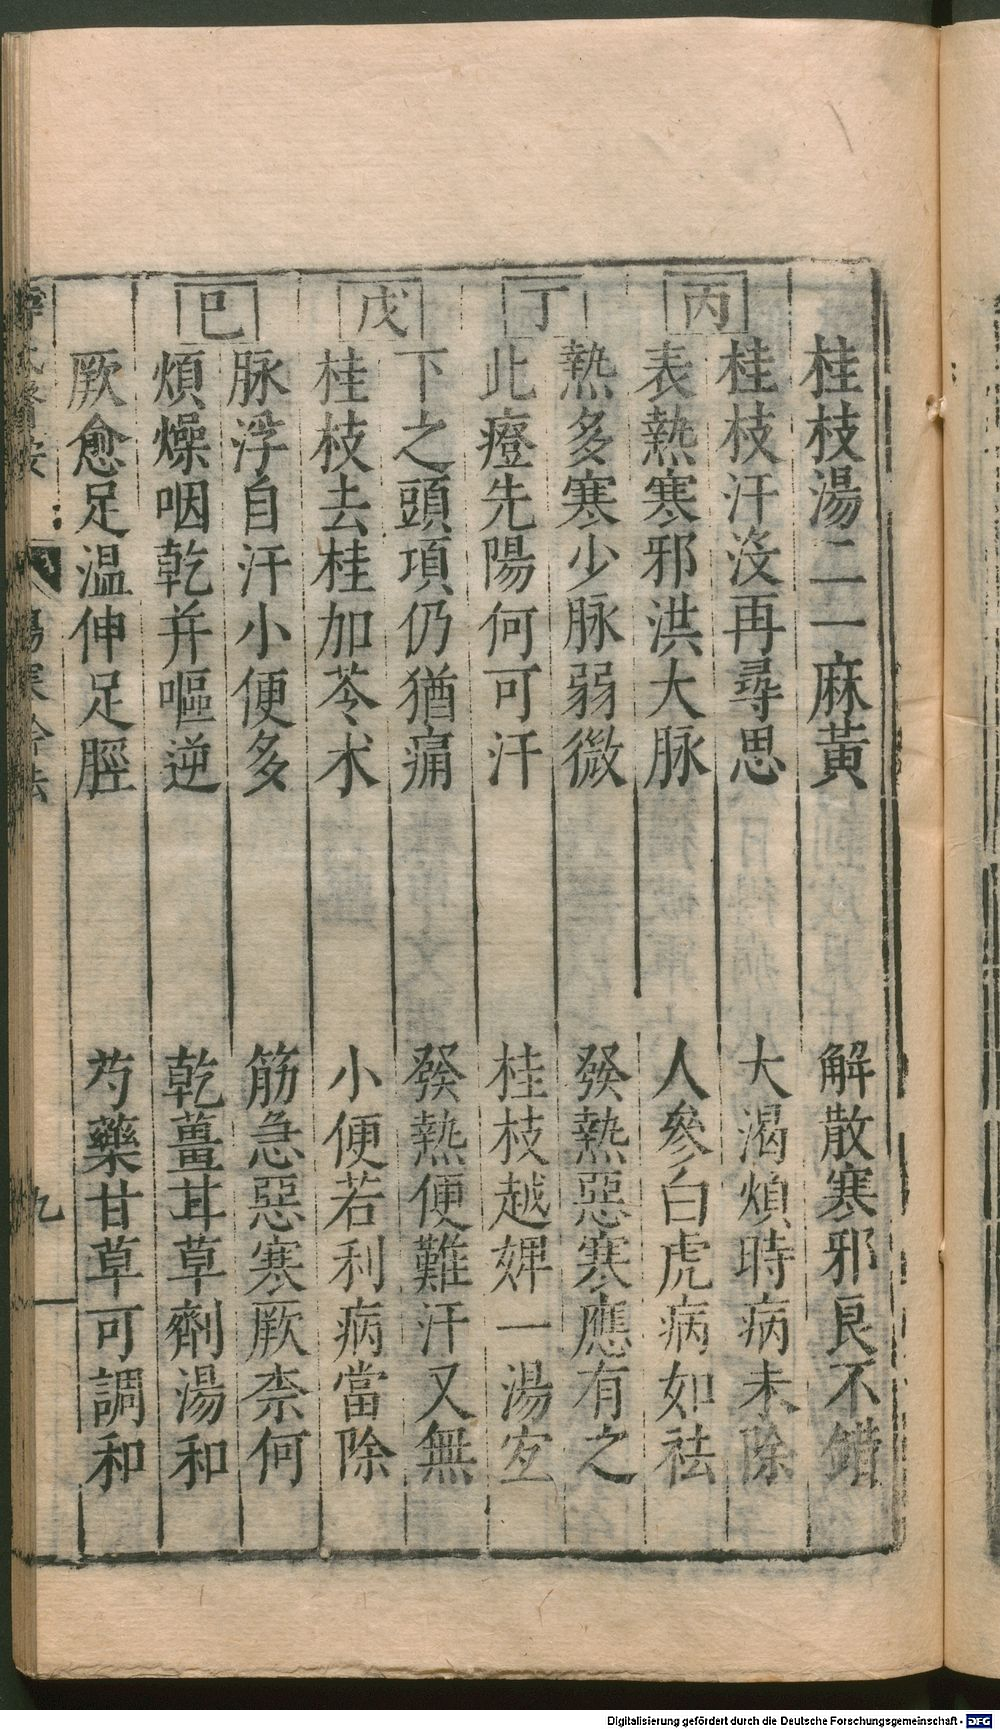 桂枝湯二一麻黃　解散寒邪良不錯
丙　桂枝汗沒再尋思　大渴煩時病未除
表熱寒邪洪大脉　人參白虎病如祛
丁　熱多寒少脉弱微　發熱惡寒應有之
此證先陽何可汗　桂枝越婢一湯宜
戊　下之頭項仍猶痛　發熱便難汗又無
桂枝去桂加苓术　小便若利病當除
巳　脉浮自汗小便多　筋急惡寒厥柰何
煩燥咽乾并嘔逆　乾薑甘草劑湯和
厥愈足温伸足脛　芍藥甘草可調和
醫按　傷寒 法　九
Digitalisierung gefördert durch die Deutsche Forschungsgemeinschaft - DFG